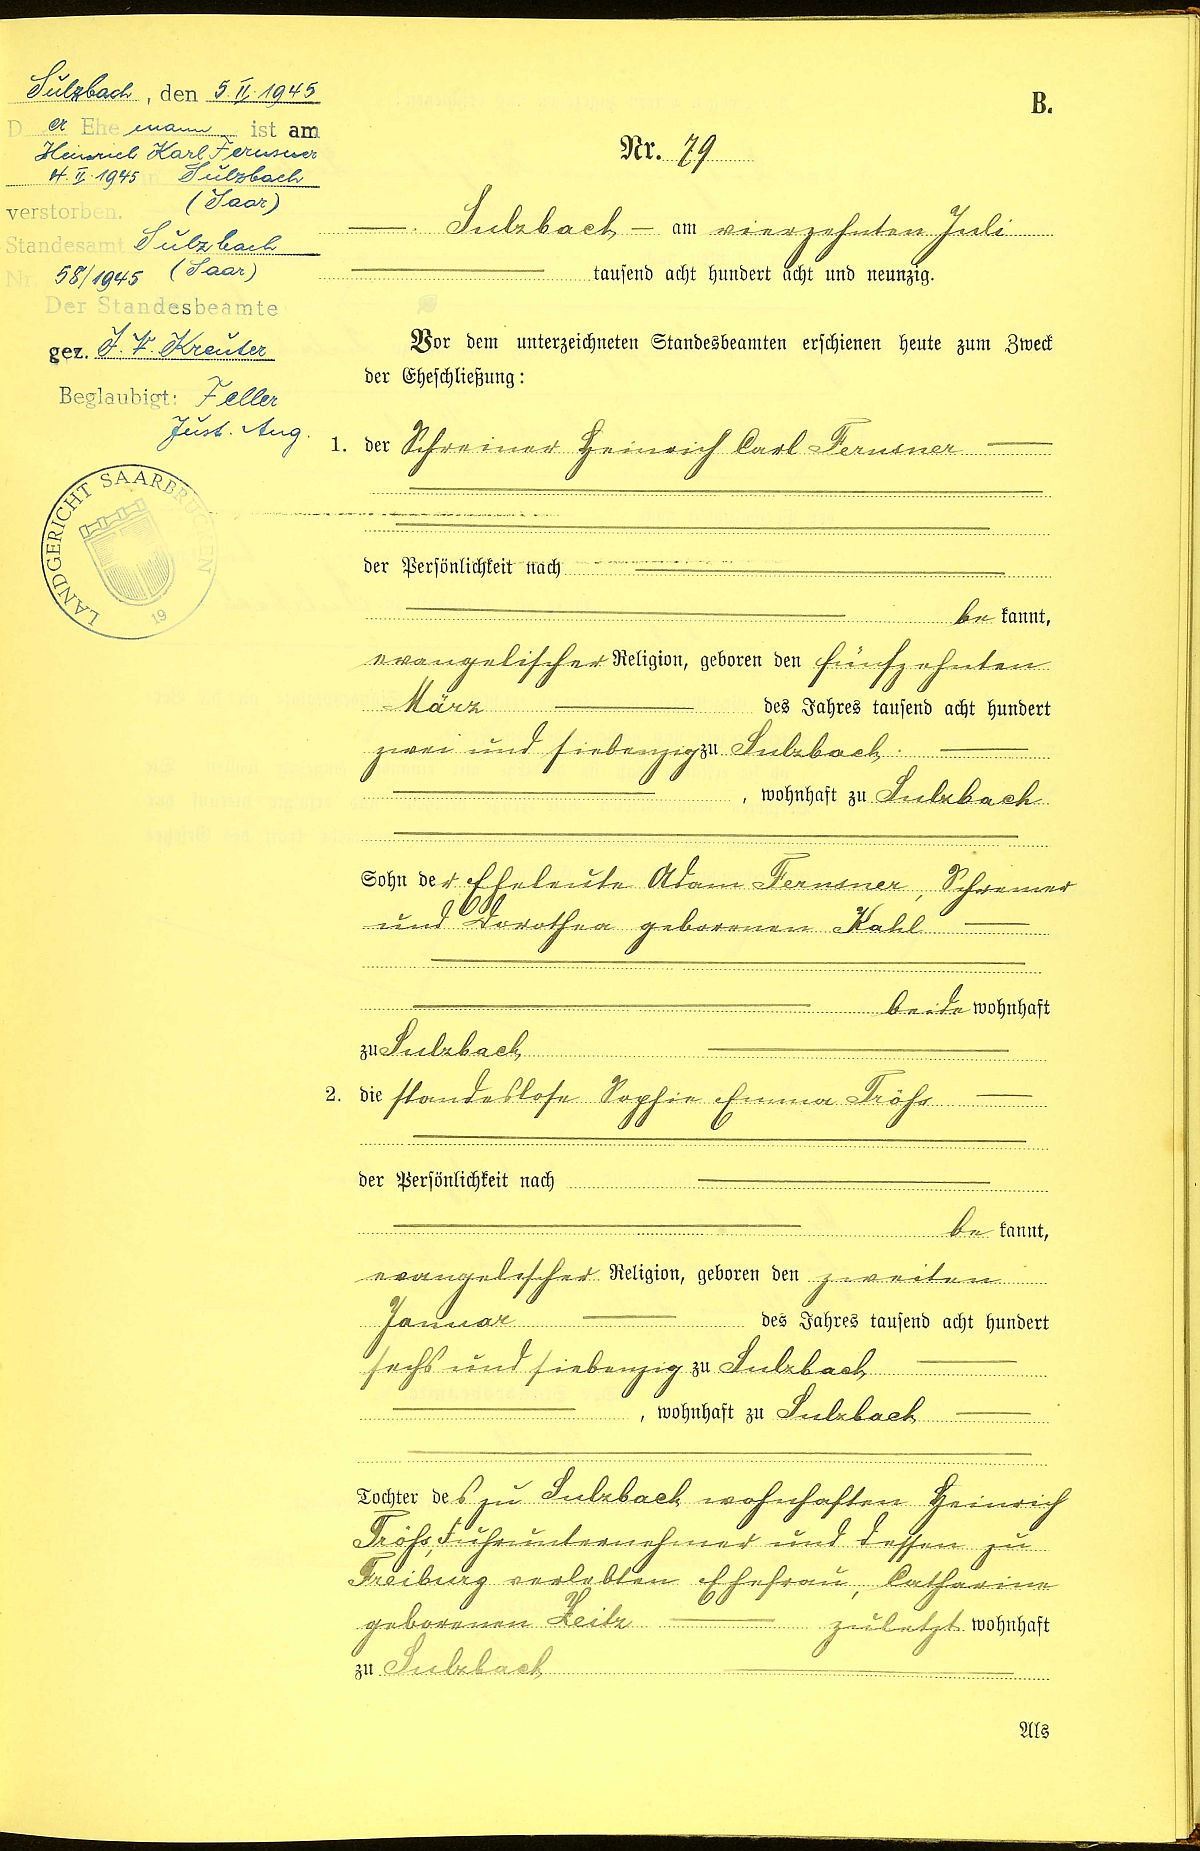 Sulzbach, den 5. II. 1945
Der Ehemann ist am
Heinrich Karl Fernsner
4. II. 1945 in Sulzbach
(Saar)
verstorben.
Standesamt Sulzbach
Nr. 58/1945 (Saar)
Der Standesbeamte
gez. J. V. Kreuter
Beglaubigt: Feller
Just. Ang.
LANDGERICHT SAARBRÜCKEN
19
B.
Nr. 79
Sulzbach am vierzehnten Juli
tausend acht hundert acht und neunzig.
Vor dem unterzeichneten Standesbeamten erschienen heute zum Zweck
der Eheschließung:
1. der Schreiner Heinrich Carl Fernsner
der Persönlichkeit nach
bekannt,
evangelischer Religion, geboren den fünfzehnten
März des Jahres tausend acht hundert
zwei und siebenzig zu Sulzbach
, wohnhaft zu Sulzbach
Sohn der Eheleute Adam Fernsner, Schreiner
und Dorothea geborenen Kahl
beide wohnhaft
zu Sulzbach
2. die standeslose Sophie Emma Tröhs
der Persönlichkeit nach
bekannt,
evangelischer Religion, geboren den zweiten
Januar des Jahres tausend acht hundert
sechs und siebenzig zu Sulzbach
, wohnhaft zu Sulzbach
Tochter des zu Sulzbach wohnhaften Heinrich
Tröhs, Fuhrunternehmer und dessen zu
Freiburg verlebten Ehefrau, Catharine
geborenen Zeitz zuletzt wohnhaft
zu Sulzbach
Als